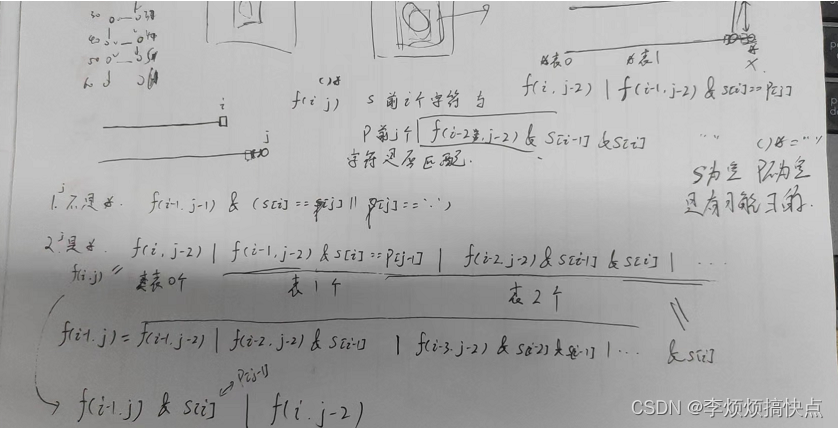 f(i j) S前i个字符与
P前j个
字符是否匹配.
f(i, j-2) | f(i-1, j-2) & S[i]==P[j]
f(i-2, j-2) & S[i-1] & S[i]
i
j
()*
()*=""
S为空 P不为空
是有可能匹配的.
1. j不是*. f(i-1, j-1) & (S[i]==P[j] || P[j]=='.')
2. j是*. f(i, j-2) | f(i-1, j-2) & S[i]==P[j-1] | f(i-2, j-2) & S[i-1] & S[i] | ...
f(i,j) = 表0个 表1个 表2个
f(i-1, j) = f(i-1, j-2) | f(i-2, j-2) & S[i-1] | f(i-3, j-2) & S[i-2] & S[i-1] | ... & S[i]
P[j-1]
f(i-1, j) & S[i] | f(i, j-2)
CSDN @李烦烦搞快点